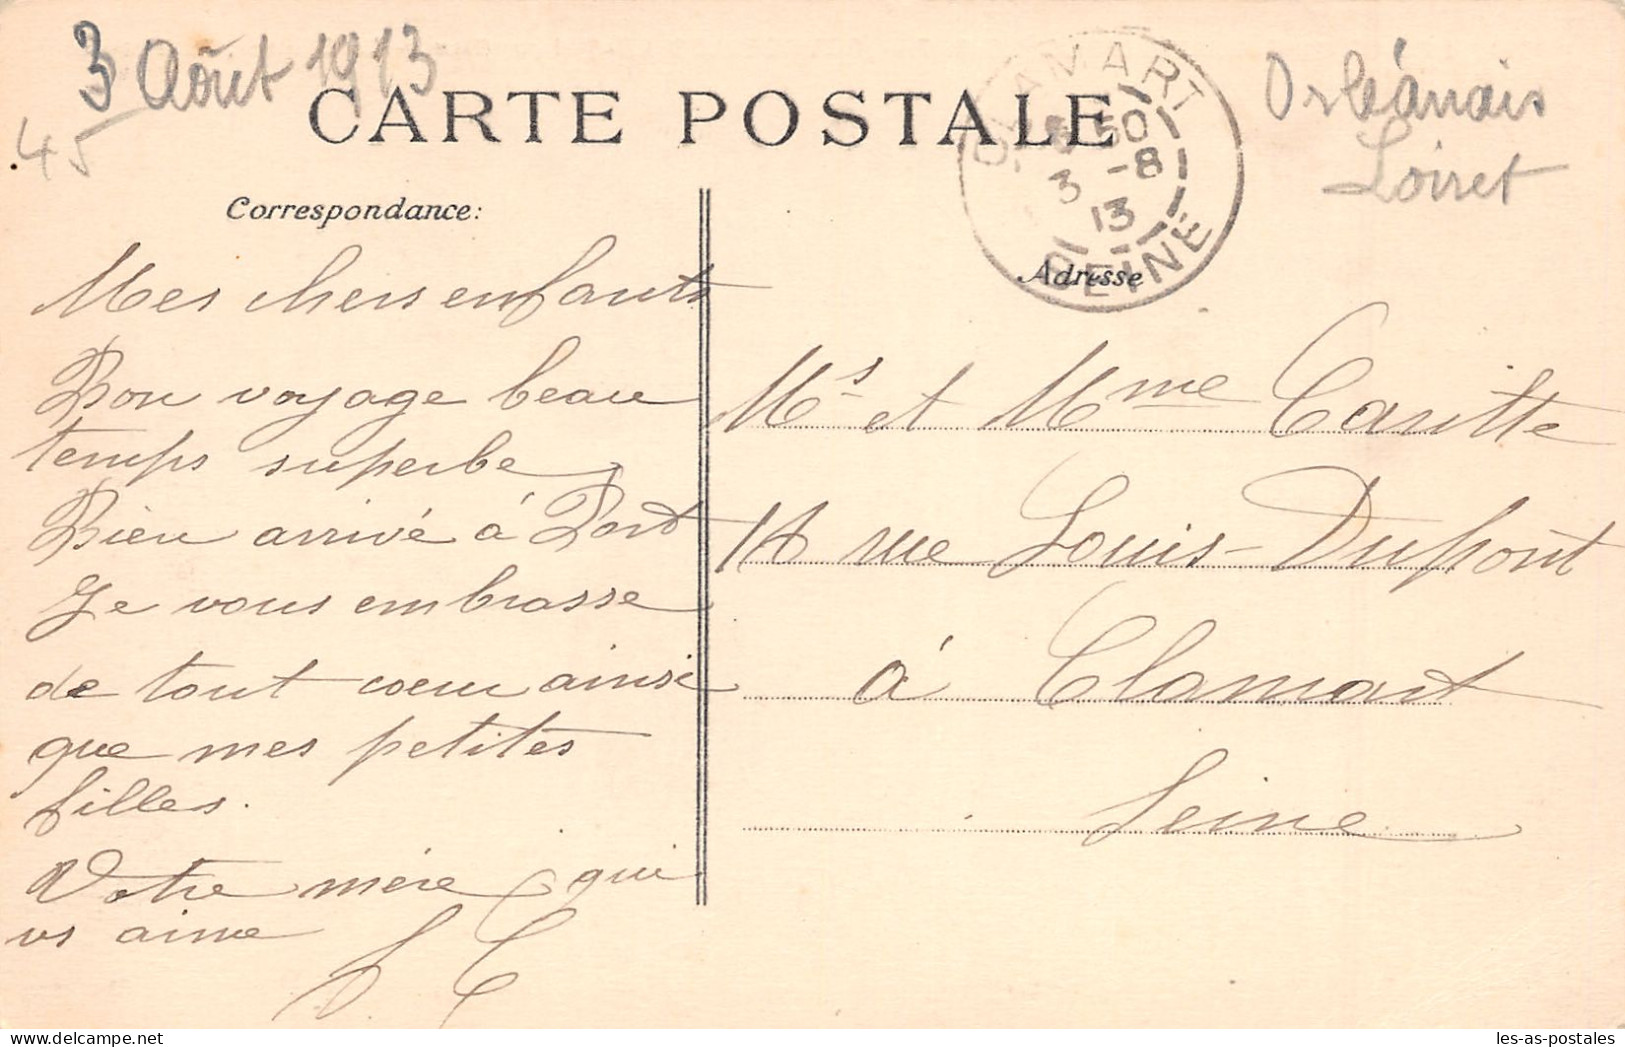 3 Août 1913
45
CARTE POSTALE
CLAMART
5 50
3 -8
13
SEINE
Orléanais
Loiret
Correspondance:
Adresse
Mes chers enfants
Bon voyage beau
temps superbe
Bien arrivé à Port
Je vous embrasse
de tout coeur ainsi
que mes petites
filles.
Votre mère qui
vs aime
Mrs et Mme Cautte
14 rue Louis-Dupont
à Clamart
Seine
les-as-postales